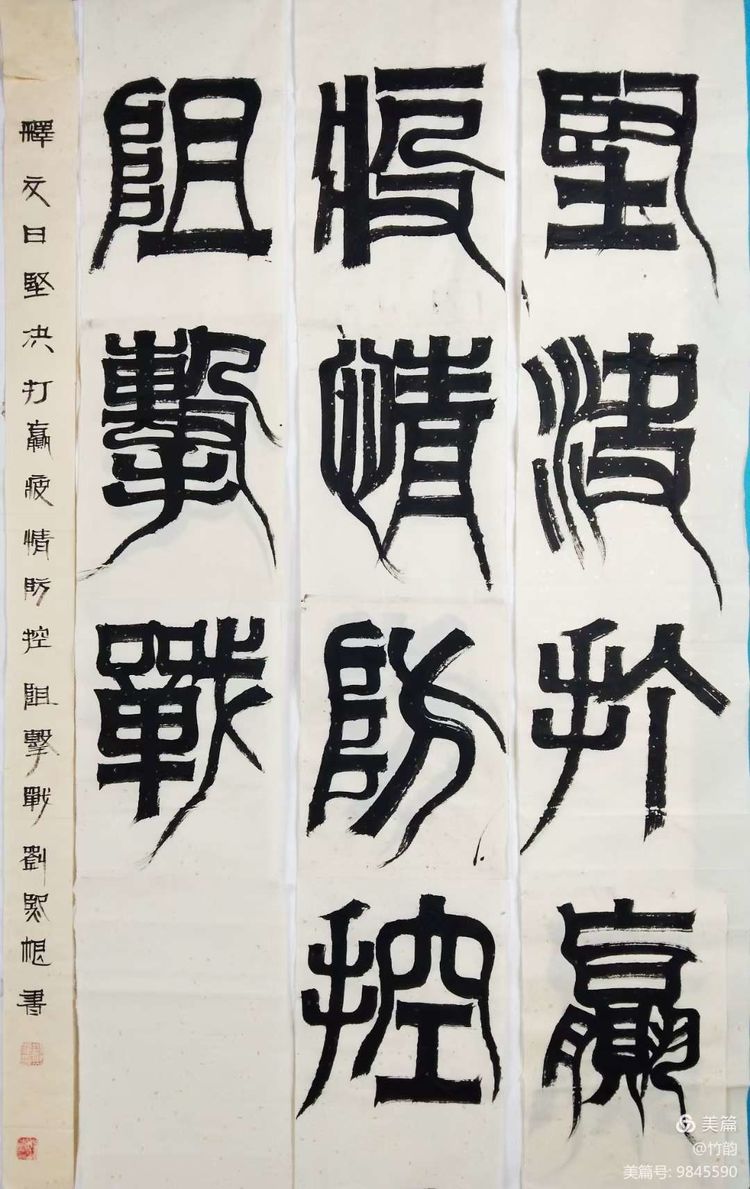 堅決打贏
疫情防控
阻擊戰
釋文曰堅決打贏疫情防控阻擊戰劉熙根書
美篇
@竹韵
美篇号: 9845590